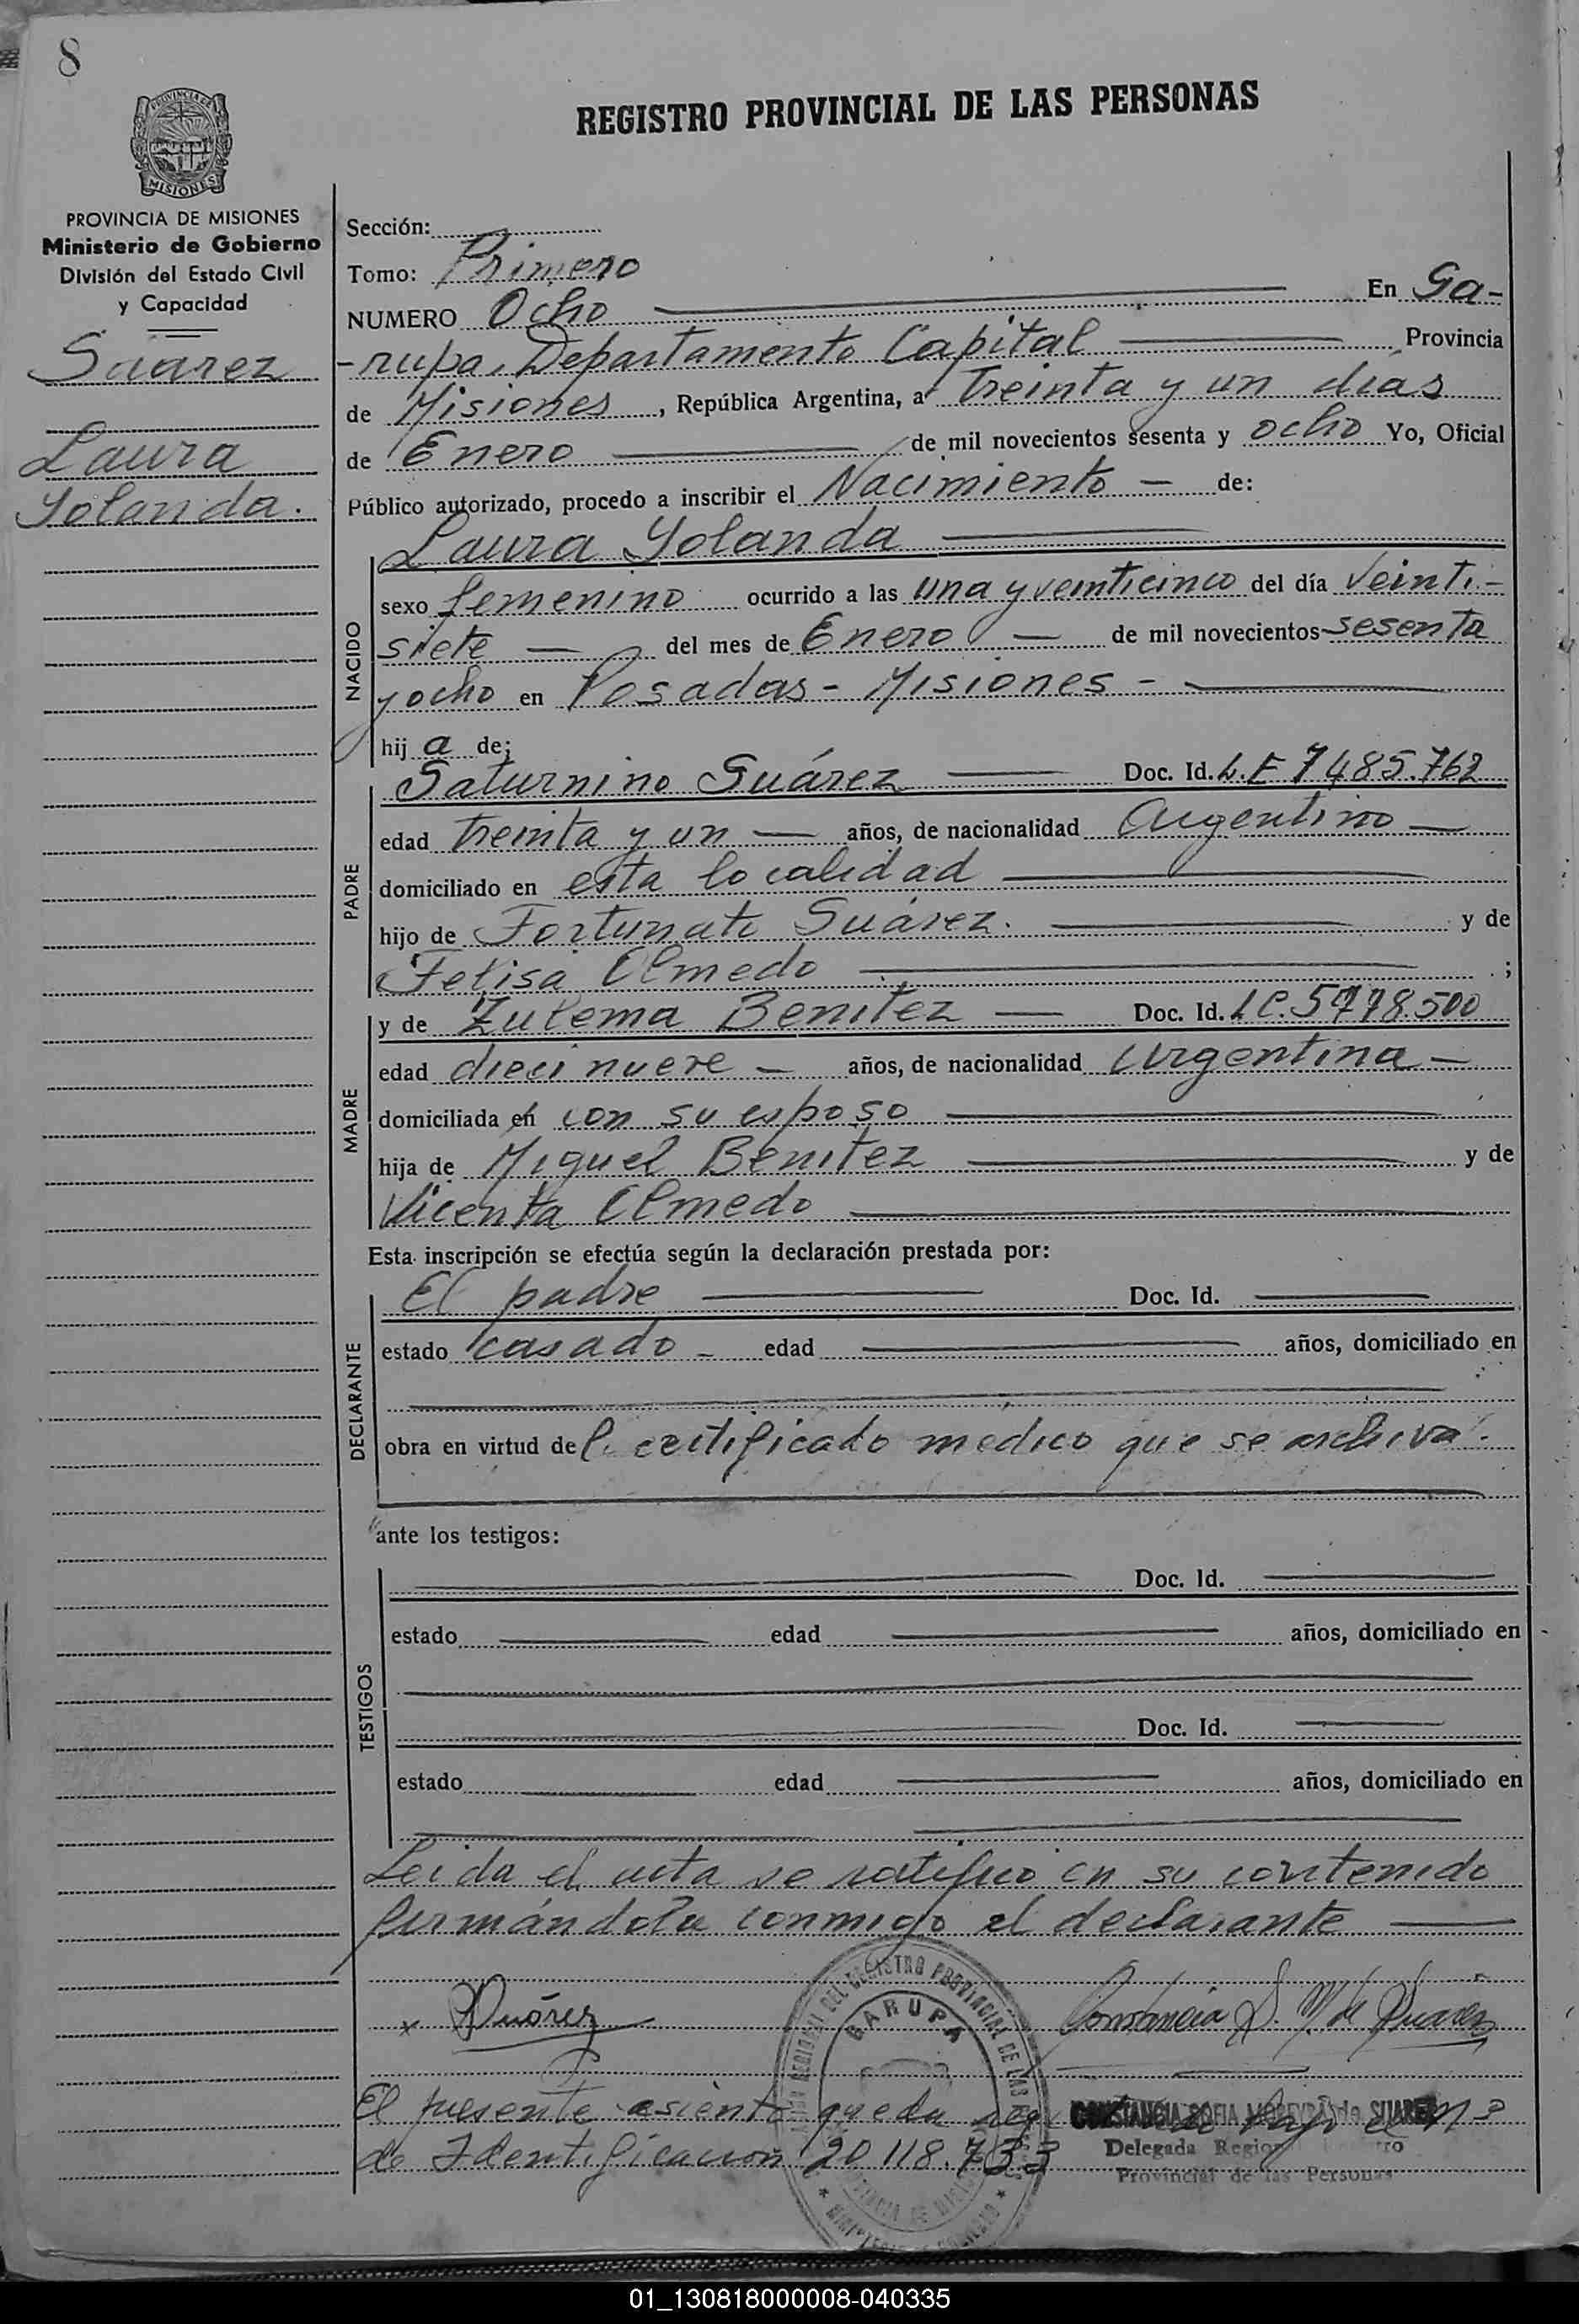 8
REGISTRO PROVINCIAL DE LAS PERSONAS
PROVINCIA DE
MISIONES
PROVINCIA DE MISIONES
Ministerio de Gobierno
División del Estado Civil
y Capacidad
Suarez
Laura
Yolanda.
Sección:
Tomo: Primero
NUMERO Ocho En Ga-
-rupa, Departamento Capital Provincia
de Misiones, República Argentina, a treinta y un días
de Enero de mil novecientos sesenta y ocho Yo, Oficial
Público autorizado, procedo a inscribir el Nacimiento — de:
Laura Yolanda
NACIDO
sexo femenino ocurrido a las una y veinticinco del día veinti-
siete — del mes de Enero — de mil novecientos sesenta
y ocho en Posadas - Misiones -
hija de:
PADRE
Saturnino Suárez Doc. Id. L.E 7485.762
edad treinta y un — años, de nacionalidad Argentino —
domiciliado en esta localidad
hijo de Fortunato Suárez. y de
Felisa Olmedo ;
MADRE
y de Zulema Benitez — Doc. Id. LC. 5.778.500
edad diecinueve — años, de nacionalidad argentina —
domiciliada en con su esposo
hija de Miguel Benitez y de
Vicenta Olmedo
Esta inscripción se efectúa según la declaración prestada por:
DECLARANTE
El padre Doc. Id.
estado casado - edad años, domiciliado en
obra en virtud del certificado médico que se archiva.
ante los testigos:
TESTIGOS
Doc. Id.
estado edad años, domiciliado en
Doc. Id.
estado edad años, domiciliado en
Leida el acta se ratificó en su contenido
firmándola conmigo el declarante
x Suárez Constancia S. M. de Suarez
REGISTRO PROVINCIAL DE LAS
GARUPA
El presente asiento queda bajo el Nº
CONSTANCIA SOFIA MOREYRA de SUAREZ
de Identificación 20.118.733
Delegada
Provincial de las Personas
01_130818000008-040335